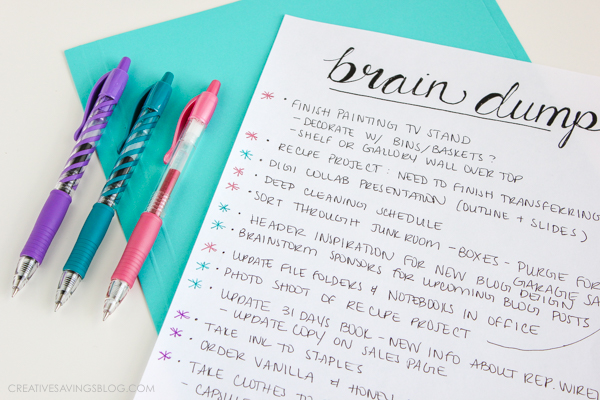 brain dump
* • FINISH PAINTING TV STAND
- DECORATE W/ BINS/BASKETS?
- SHELF OR GALLORY WALL OVER TOP
* • RECIPE PROJECT: NEED TO FINISH TRANSFERRING
* • DIGI COLLAB PRESENTATION (OUTLINE + SLIDES)
* • DEEP CLEANING SCHEDULE
* • SORT THROUGH JUNK ROOM - BOXES - PURGE FOR GARAGE SA
* • HEADER INSPIRATION FOR NEW BLOG DESIGN
* • BRAINSTORM SPONSORS FOR UPCOMING BLOG POSTS
* • UPDATE FILE FOLDERS & NOTEBOOKS IN OFFICE
* • PHOTO SHOOT OF RECIPE PROJECT
* • UPDATE 31 DAYS BOOK - NEW INFO ABOUT REP. WIRE
- UPDATE COPY ON SALES PAGE
* • TAKE INK TO STAPLES
* • ORDER VANILLA & HONEY
* • TAKE CLOTHES TO
CREATIVESAVINGSBLOG.COM